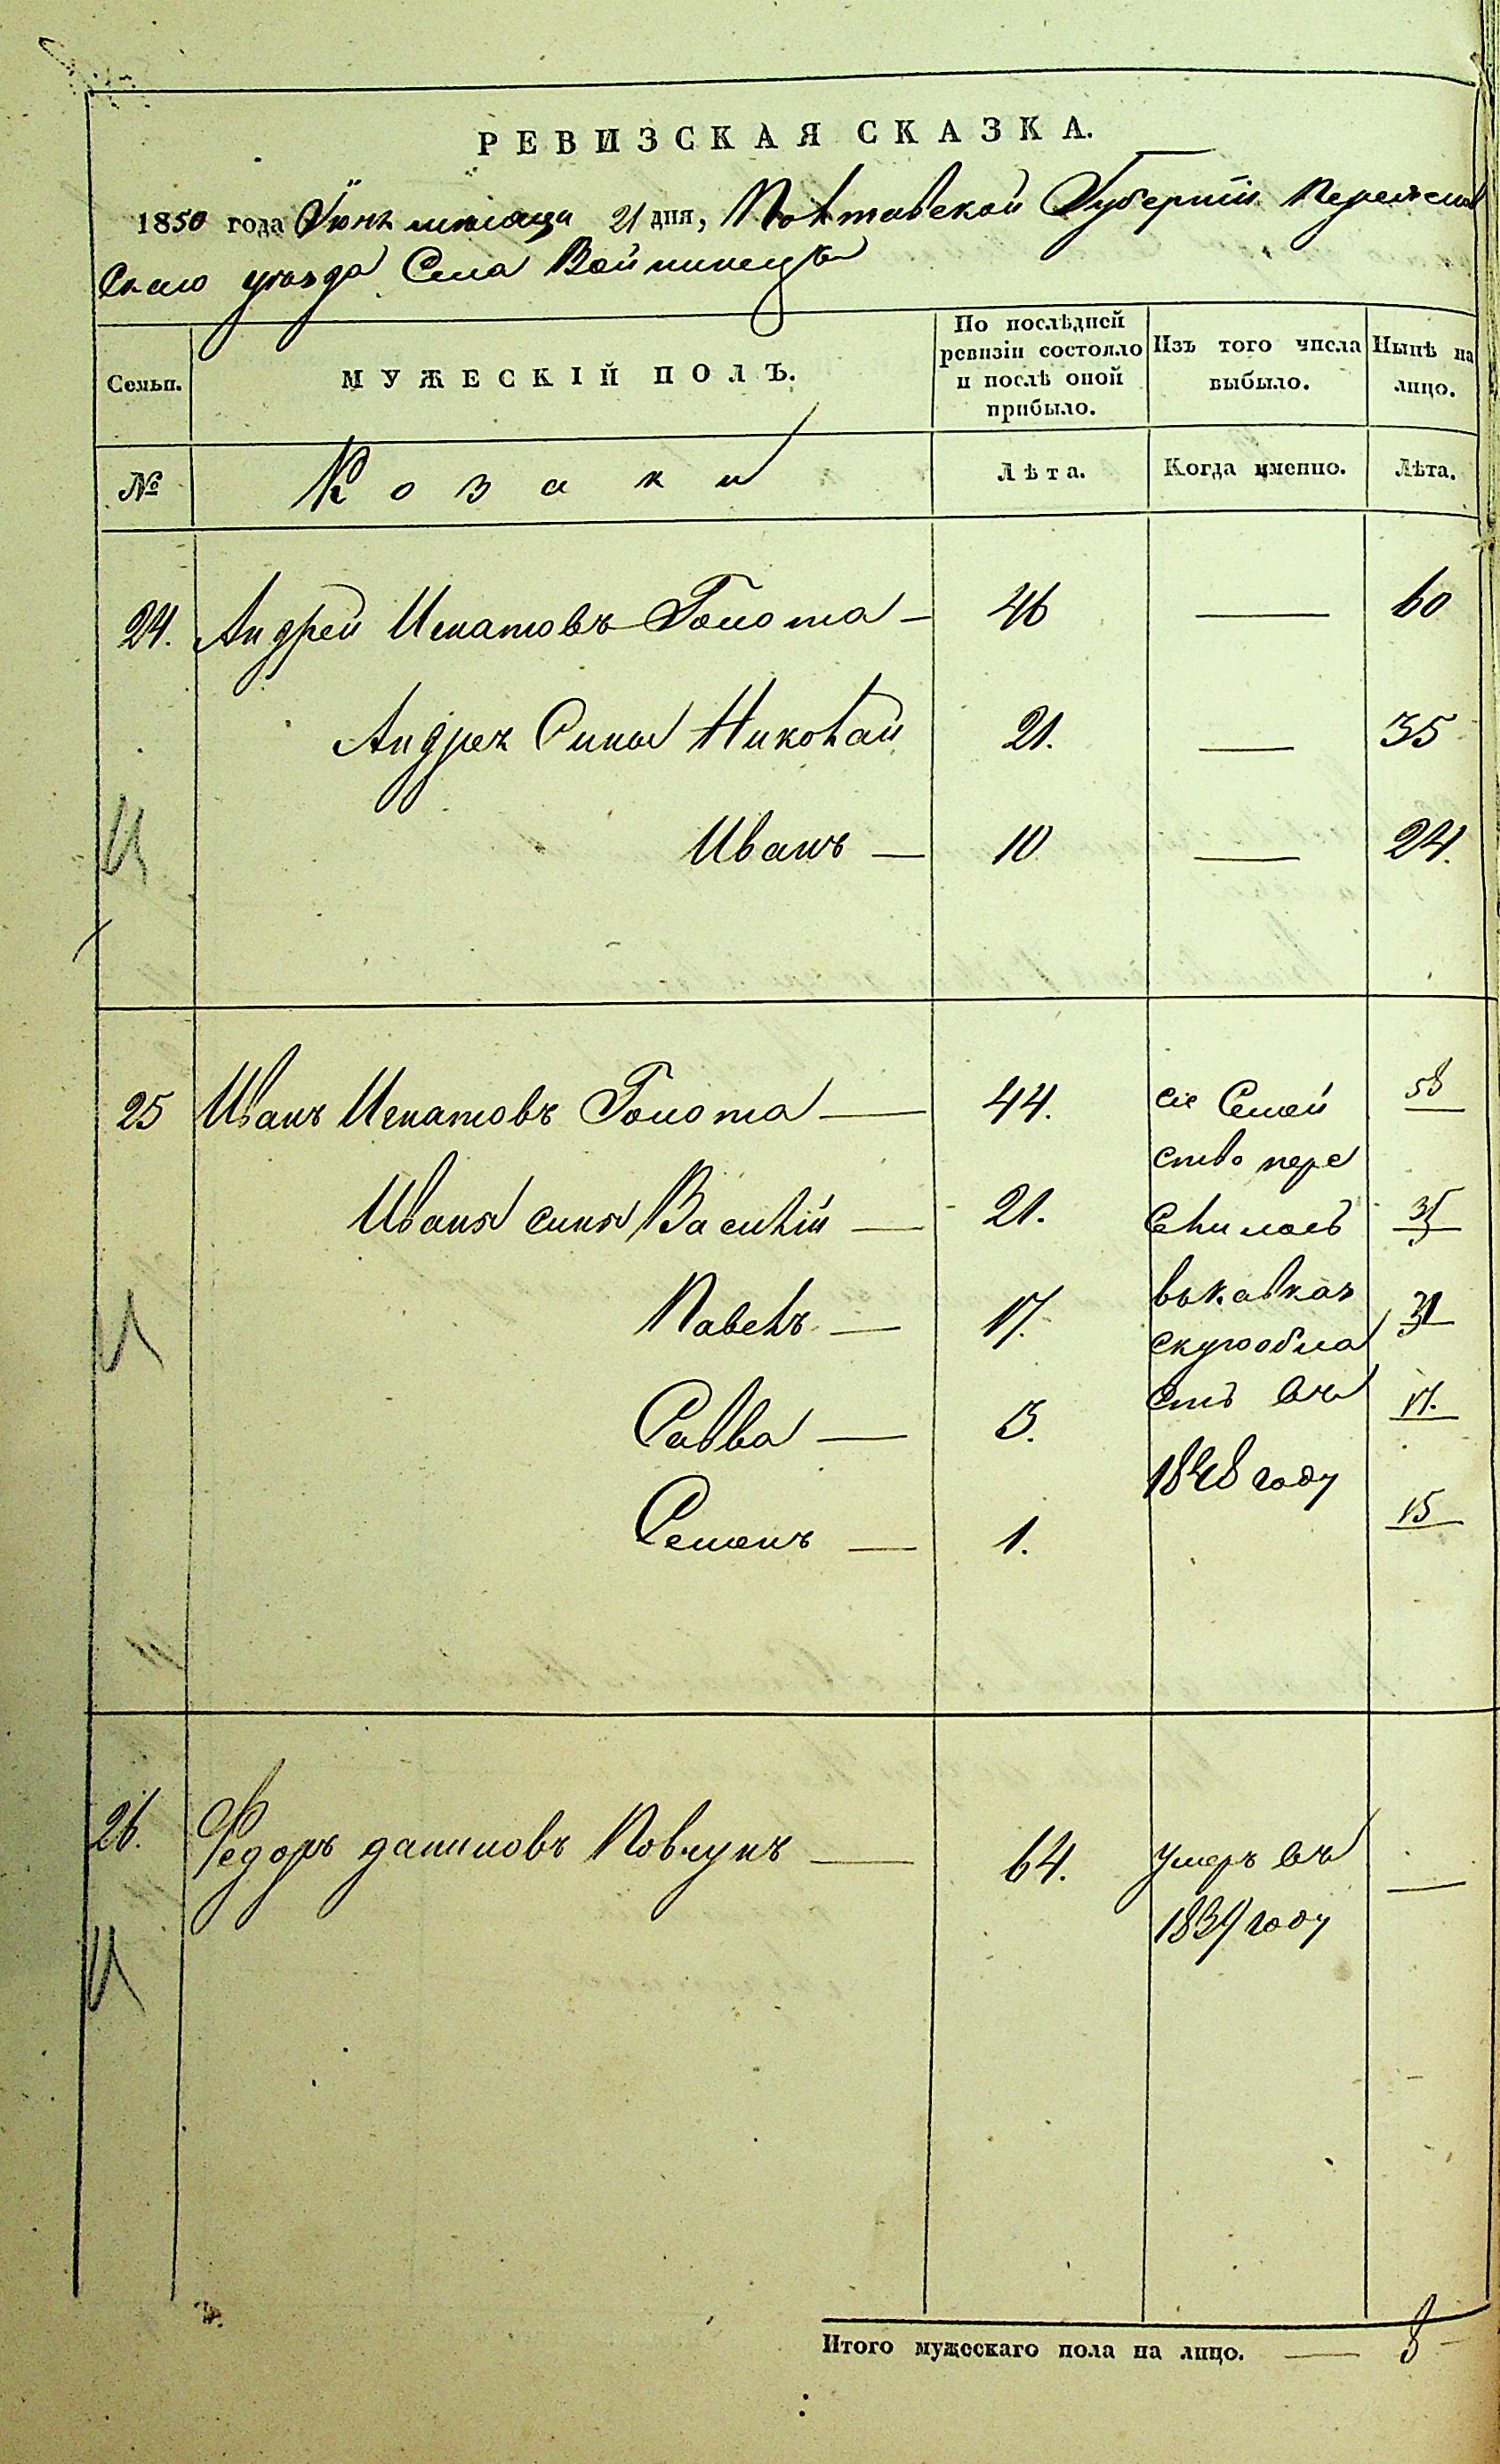 РЕВИЗСКАЯ СКАЗКА.
1850 года Іюня месяца 21 дня, Полтавской Губерніи Переяслав
скаго уезда Села Войнинецъ
Семьи.
МУЖЕСКІЙ ПОЛЪ.
По послѣдней ревизіи состояло и послѣ оной прибыло.
Изъ того числа выбыло.
Нынѣ на лицо.
№
Козаки
Лѣта.
Когда именно.
Лѣта.
24. Андрей Игнатовъ Голота — 46 — 60
Андрея Сины Николай 21. — 35
Иванъ — 10 — 24.
25 Иванъ Игнатовъ Голота — 44. сіе Семей 58
ство пере
Ивана сины Василій — 21. Селилось 35
Павелъ — 17. въ Кавказ 31
скую обла
Савва — 3. сть въ 17.
1848 году
Семенъ — 1. 15
26. Федоръ даниловъ Ковтунъ — 64. умеръ въ —
1839 году
Итого мужескаго пола на лицо. — 8